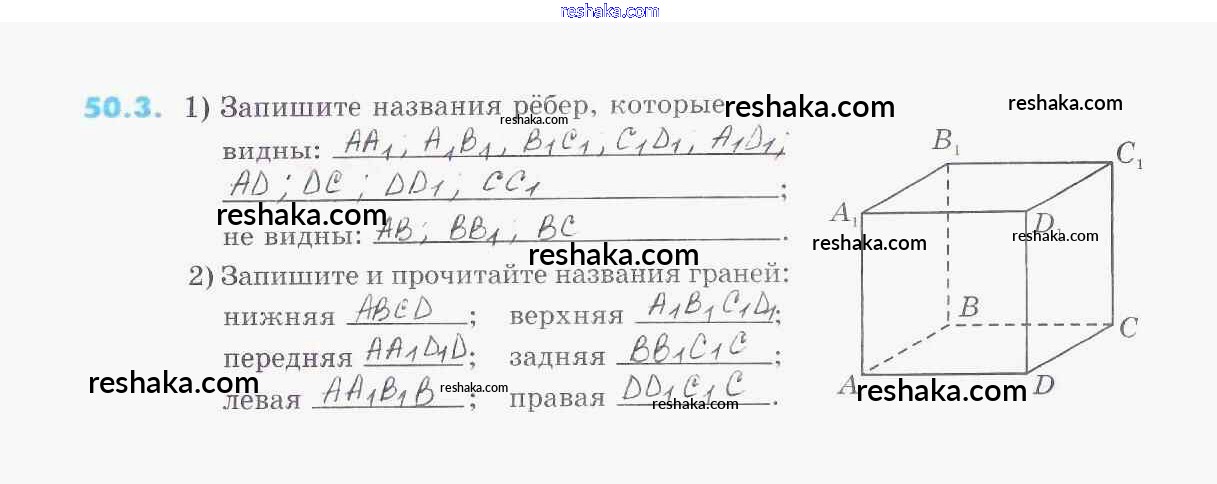 reshaka.com
50.3. 1) Запишите названия рёбер, которые reshaka.com reshaka.com
reshaka.com
видны: AA₁; A₁B₁; B₁C₁; C₁D₁; A₁D₁;
AD; DC; DD₁; CC₁;
reshaka.com
не видны: AB; BB₁; BC.
reshaka.com
2) Запишите и прочитайте названия граней:
нижняя ABCD; верхняя A₁B₁C₁D₁;
передняя AA₁D₁D; задняя BB₁C₁C;
reshaka.com
левая AA₁B₁B; правая DD₁C₁C.
reshaka.com
reshaka.com
B₁
C₁
A₁
D₁
reshaka.com
reshaka.com
B
C
A
D
reshaka.com